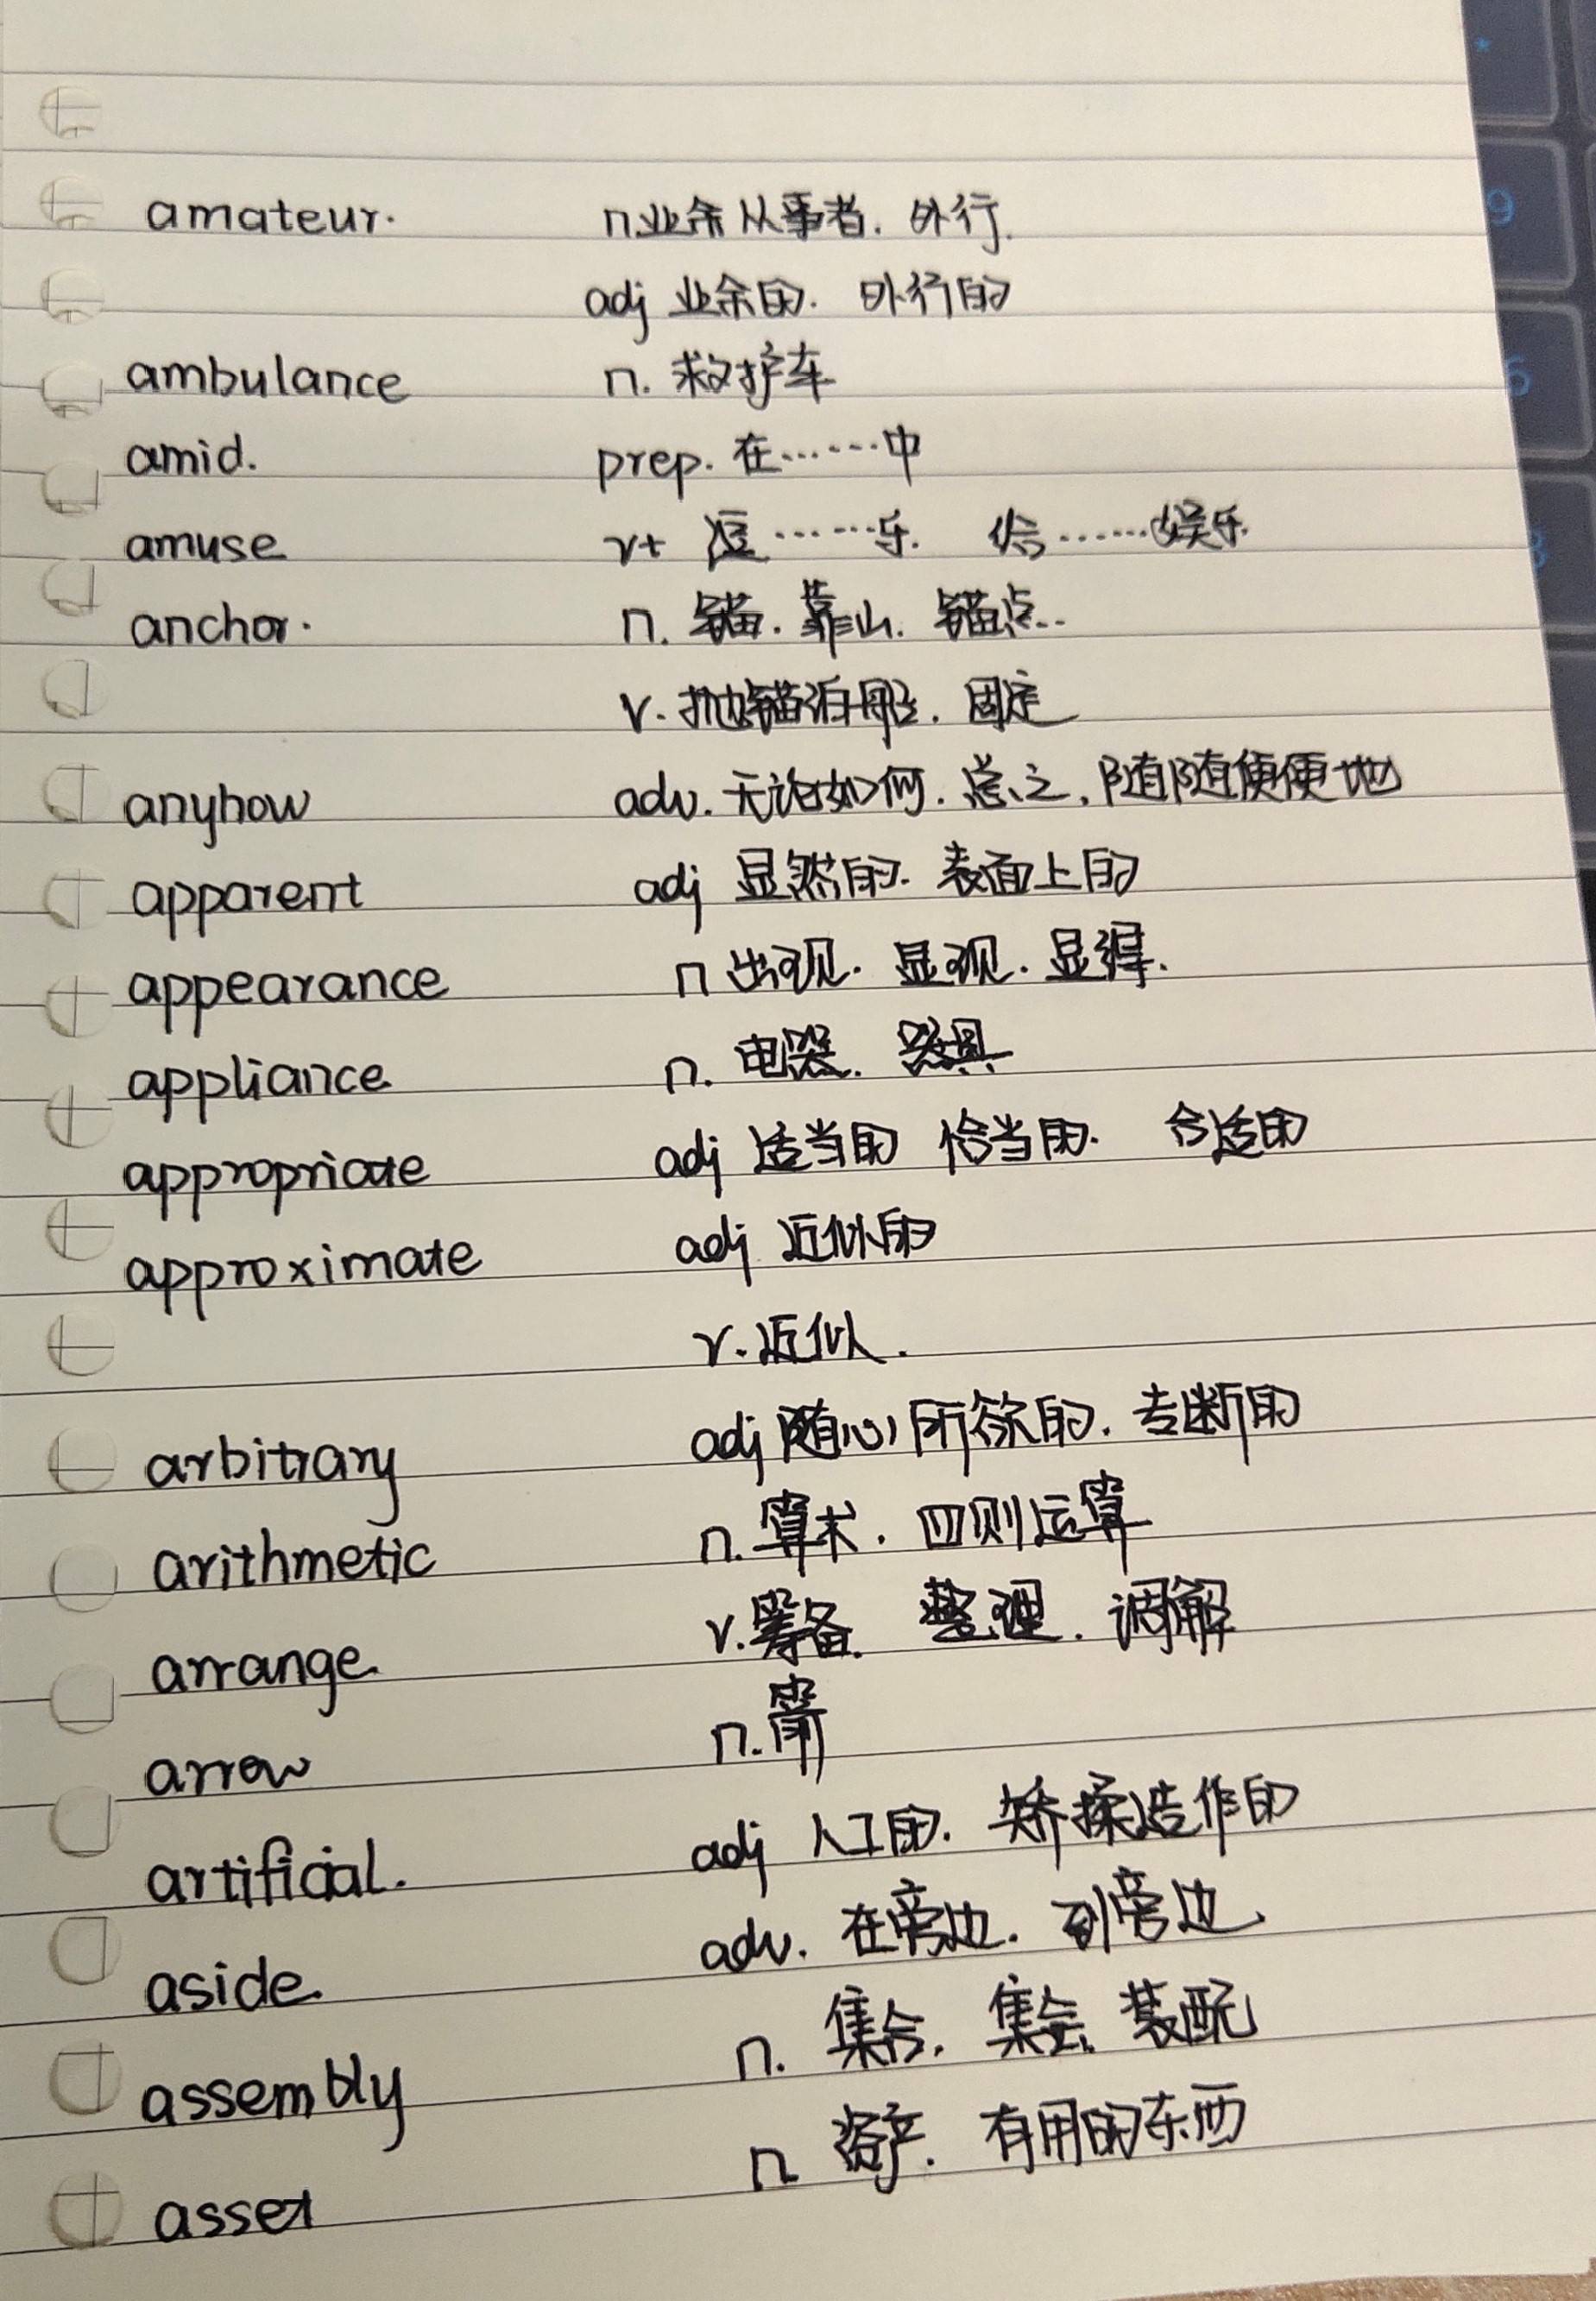 amateur. n 业余从事者. 外行.
adj 业余的. 外行的
ambulance n. 救护车
amid. prep. 在……中
amuse vt 逗……乐. 给……娱乐.
anchor. n. 锚. 靠山. 锚点..
v. 抛锚泊船. 固定
anyhow adv. 无论如何. 总之, 随随便便地
apparent adj 显然的. 表面上的
appearance n 出现. 显现. 显得.
appliance n. 电器. 器具
appropriate adj 适当的 恰当的. 合适的
approximate adj 近似的
v. 近似.
arbitrary adj 随心所欲的. 专断的
arithmetic n. 算术. 四则运算
arrange v. 筹备. 整理. 调解
arrow n. 箭
artificial. adj 人工的. 矫揉造作的
aside. adv. 在旁边. 到旁边.
assembly n. 集合. 集会. 装配
asset n 资产. 有用的东西